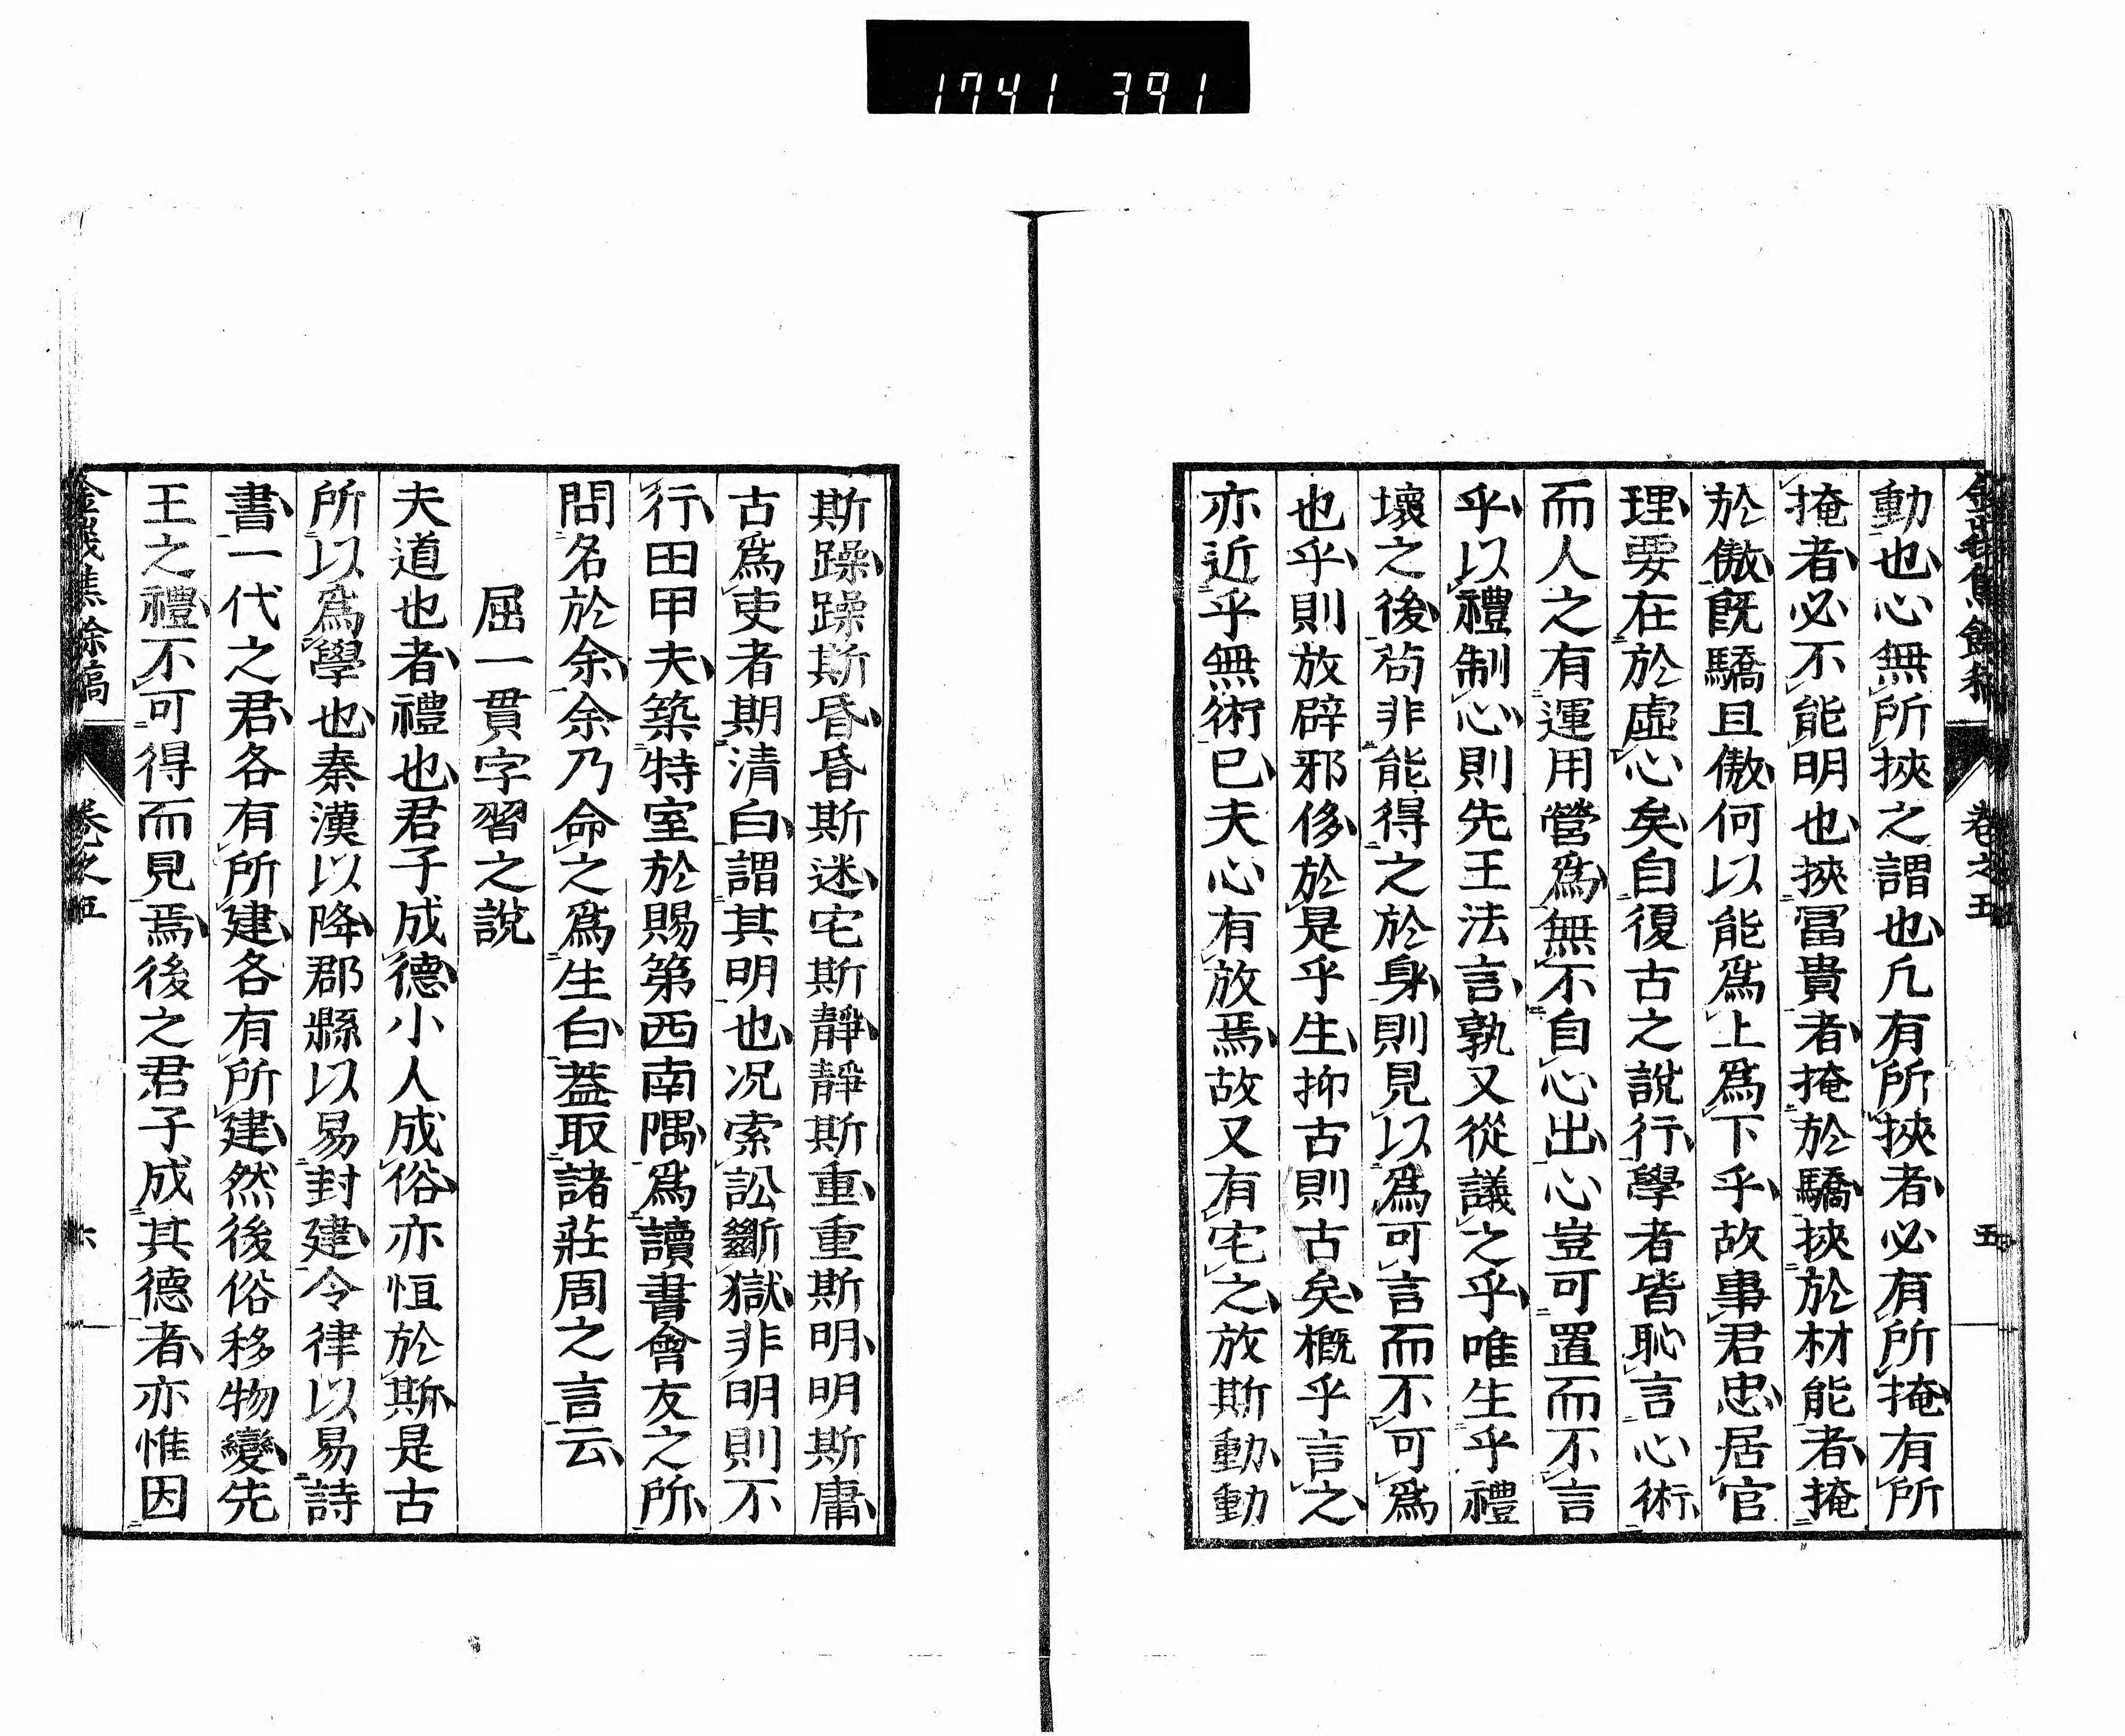 1741 391
卷之五
五
動也心無所挾之謂也凢有所挾者必有所掩有所
掩者必不能明也挾冨貴者掩於驕挾於材能者掩
於傲旣驕且傲何以能爲上爲下乎故事君忠居官
理要在於虛心矣自復古之說行學者皆恥言心術
而人之有運用營爲無不自心出心豈可置而不言
乎以禮制心則先王法言孰又從議之乎唯生乎禮
壞之後茍非能得之於身則見以爲可言而不可爲
也乎則放辟邪侈於是乎生抑古則古矣概乎言之
亦近乎無術已夫心有放焉故又有宅之放斯動動
斯躁躁斯昏昏斯迷宅斯靜靜斯重重斯明明斯庸
古爲吏者期清白謂其明也况索訟斷獄非明則不
行田甲夫築特室於賜第西南隅爲讀書會友之所
問名於余余乃命之爲生白葢取諸莊周之言云
屈一貫字習之說
夫道也者禮也君子成德小人成俗亦恒於斯是古
所以爲學也秦漢以降郡縣以易封建令律以易詩
書一代之君各有所建各有所建然後俗移物變先
王之禮不可得而見焉後之君子成其德者亦惟因
餘稿
卷之五
六